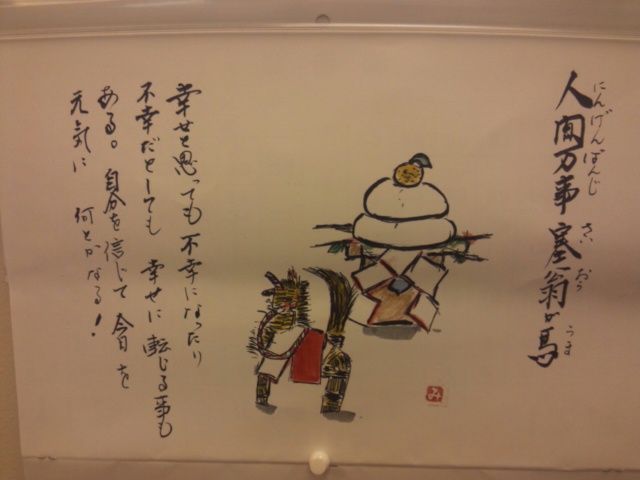 人間万事塞翁が馬
にんげんばんじ さい おう うま
幸せと思っても不幸になったり
不幸だとしても 幸せに 転じる事も
ある。 自分を信じて 今日を
元気に 何とかなる!
み